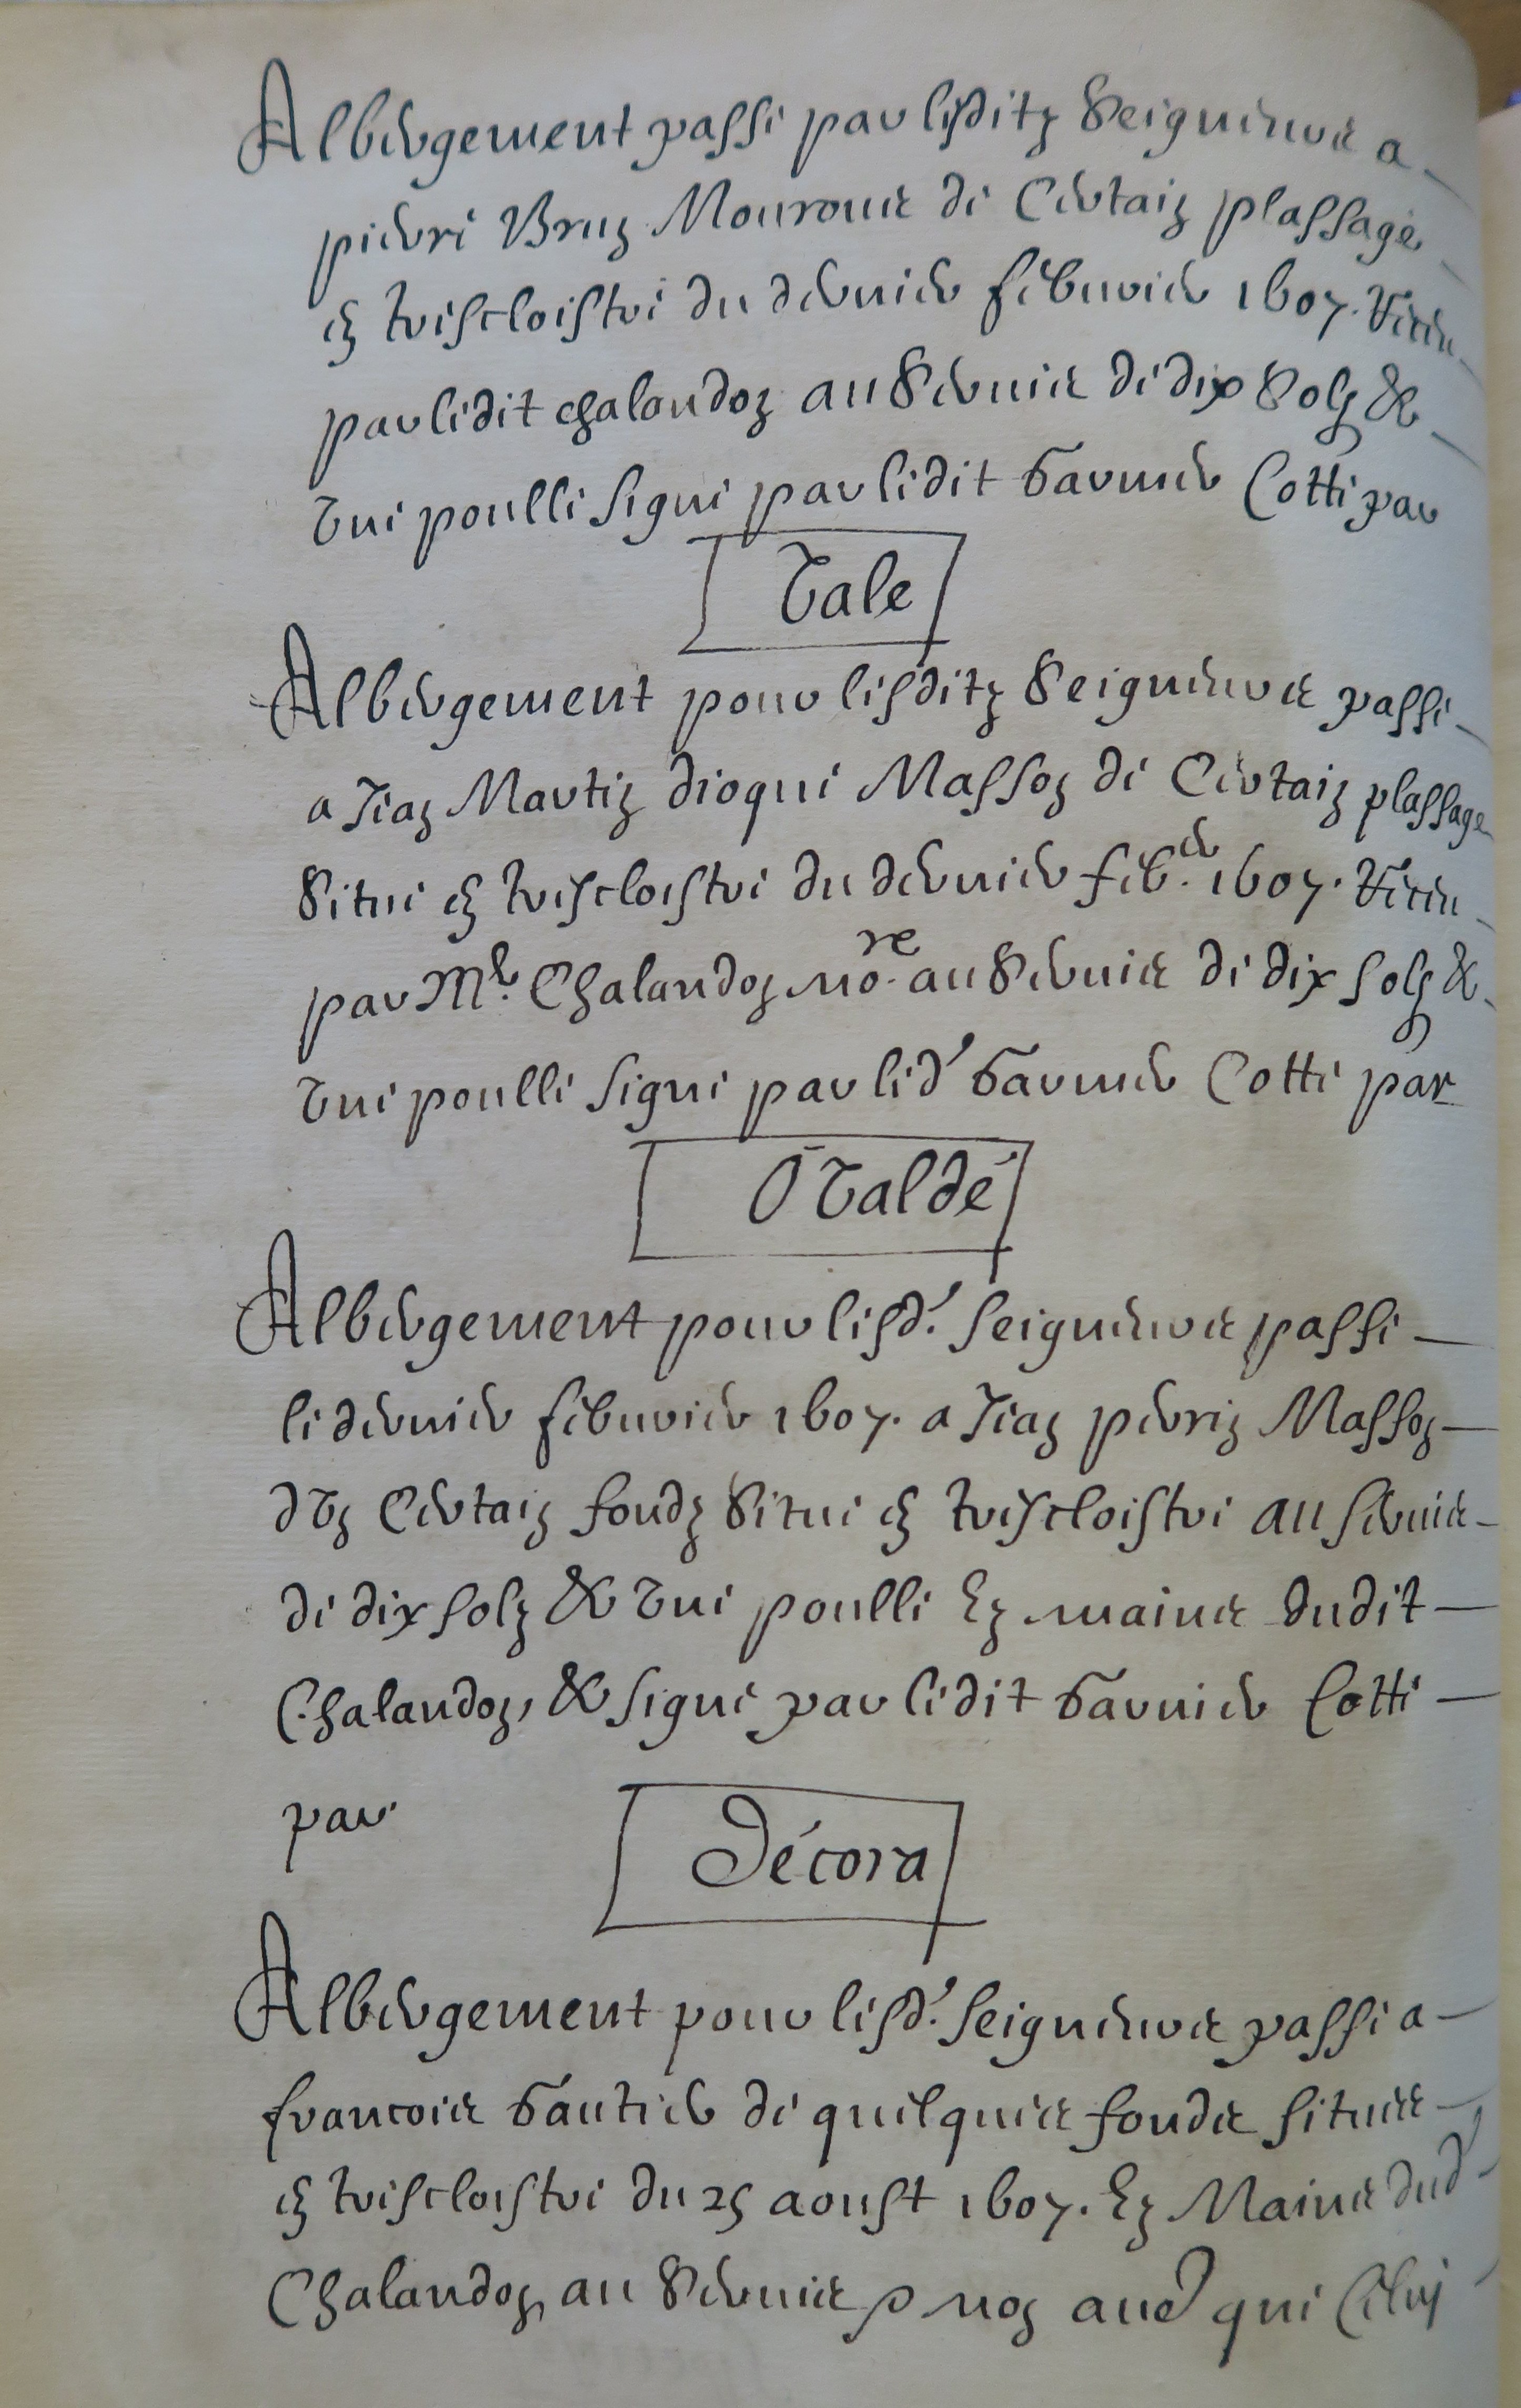 Albergement passe par lesditz Seigneurs a
pierre Brun Mourous de Certain plassage
en trescloistre du dernier febvrier 1607. Receu
par ledit chalandon au Servis de dix Solz &
une poulle signé par ledit Garnier Cotté par
Vale
Albergement pour lesditz Seigneurs passe
a Jean Martin dioque Masson de Certain plassage
Situé en trescloistre du dernier feb.er 1607. Receu
par Mr. Chalandon no.re au Servis de dix solz &
une poulle signé par led' Garnier Cotté par
O Valde
Albergement pour lesd.' seigneurs passe
le dernier febvrier 1607. a Jean perrin Masson
d'un Certain fondz Situé en trescloistre au servis
de dix solz & une poulle Ez mains dudit
Chalandon, & signé par ledit Garnier Cotté
par
Décora
Albergement pour lesd.' seigneurs passe a
francois Gautier de quelques fonds situes
en trescloistre du 25 aoust 1607. Ez Mains dud'
Chalandon, au Servis p non aud' que Celuy